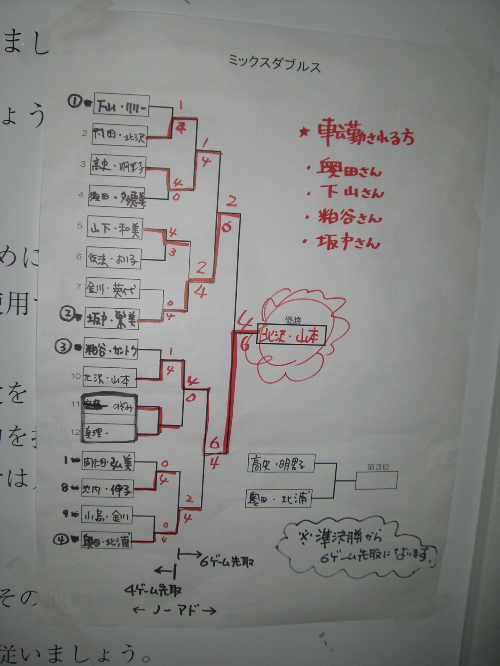 まし
ょう
めに
使用
を
を
は
その
従いましょう。
ミックスダブルス
① 下山・
1
2 竹田・北沢
4
3 高史・明野子
4
4
0
1
4
5 山下・和美
4
6
3
7 金川・英代
0
② 坂中・繁美
4
2
4
2
6
③ 粕谷・
1
10 北沢・山本
4
11 のぞみ
12 真理・
4
0
1 ・弘美
0
8 池内・伸子
4
9 小島・金川
0
④ 奥田・北浦
4
2
4
6
4
4
6
優勝
北沢・山本
★ 転勤される方
・奥田さん
・下山さん
・粕谷さん
・坂中さん
高史・明野子
奥田・北浦
第3位
※準決勝から
6ゲーム先取になります。
6ゲーム先取
4ゲーム先取
← ノーアド →